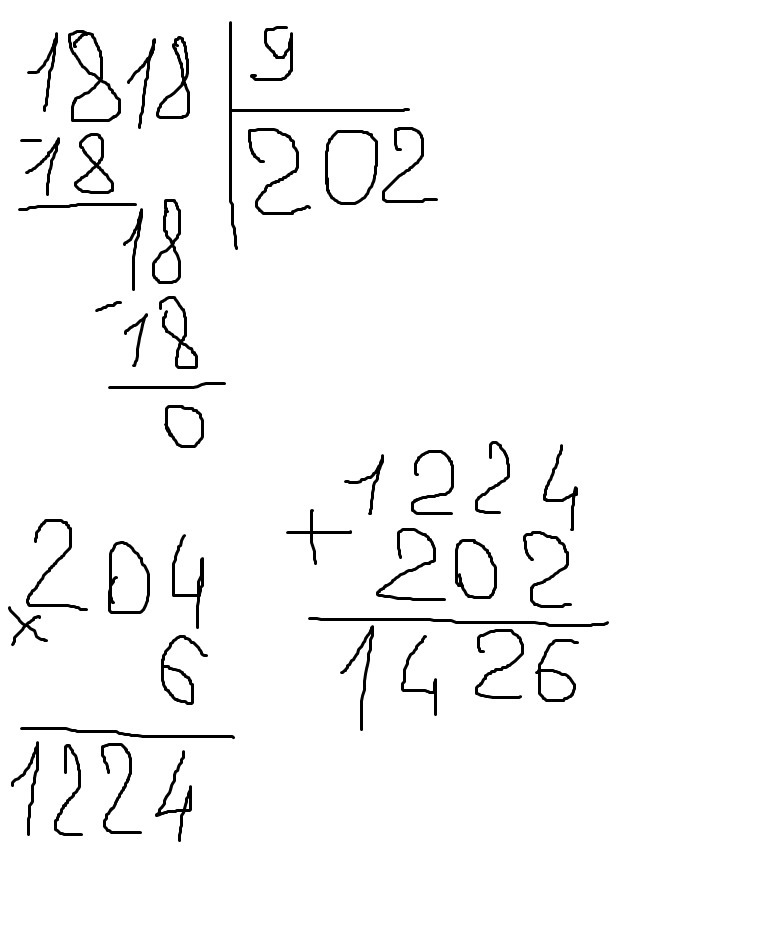 1818 9
-18 202
18
-18
0
204
×
6
1224
1224
+
202
1426